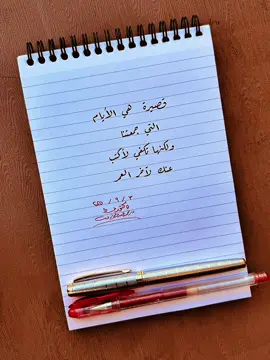 قصيرة هي الأيام
التي جمعتنا
ولكنها تكفي لأكتب
عنك لآخر العمر